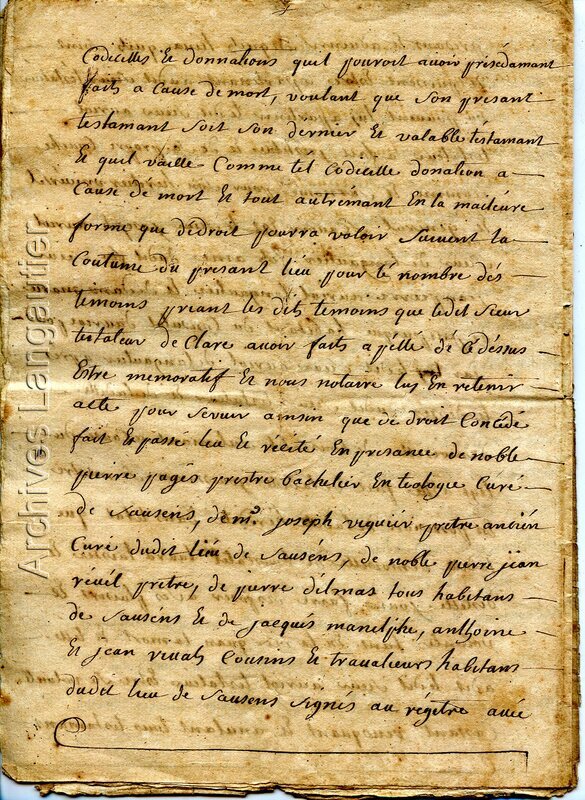 Codicilles Et donnations quil pouroit avoir présedamant
faits a Cause de mort, voulant que Son presant
testamant soit son dérnier Et valable téstamant
Et quil vaille Comme tel Codicille donation a
Cause dé mort Et tout autrémant En la mailéure
forme que dédroit pourra valoir Suivent la
Coutume du présant lieu pour lé nombre dés
témoins priant les dits temoins que ledit Sieur
testateur dé Claré avoir faits apéllé dé cédéssus
Estre mémoratif Et nous notaire lus En reténir
atte pour sérvir ainsin que dé droit Concédé
fait Et passé leu Et récité En présance de noble
pierre pagés prêstre bachélier En téologie Curé
de Sausens, de mᵉ. joseph viguiér prêtre ancién
Curé dudit liéu de Sauséns, de noble pierre jéan
réveil prêtre, de pierre délmas tous habitans
de Sauséns Et dé jacqués manélphe, anthoine
Et jéan vivals Cousins Et travaliéurs habitans
dudit liéu de Sausens Signés au régétre avéc
Archives Langautier